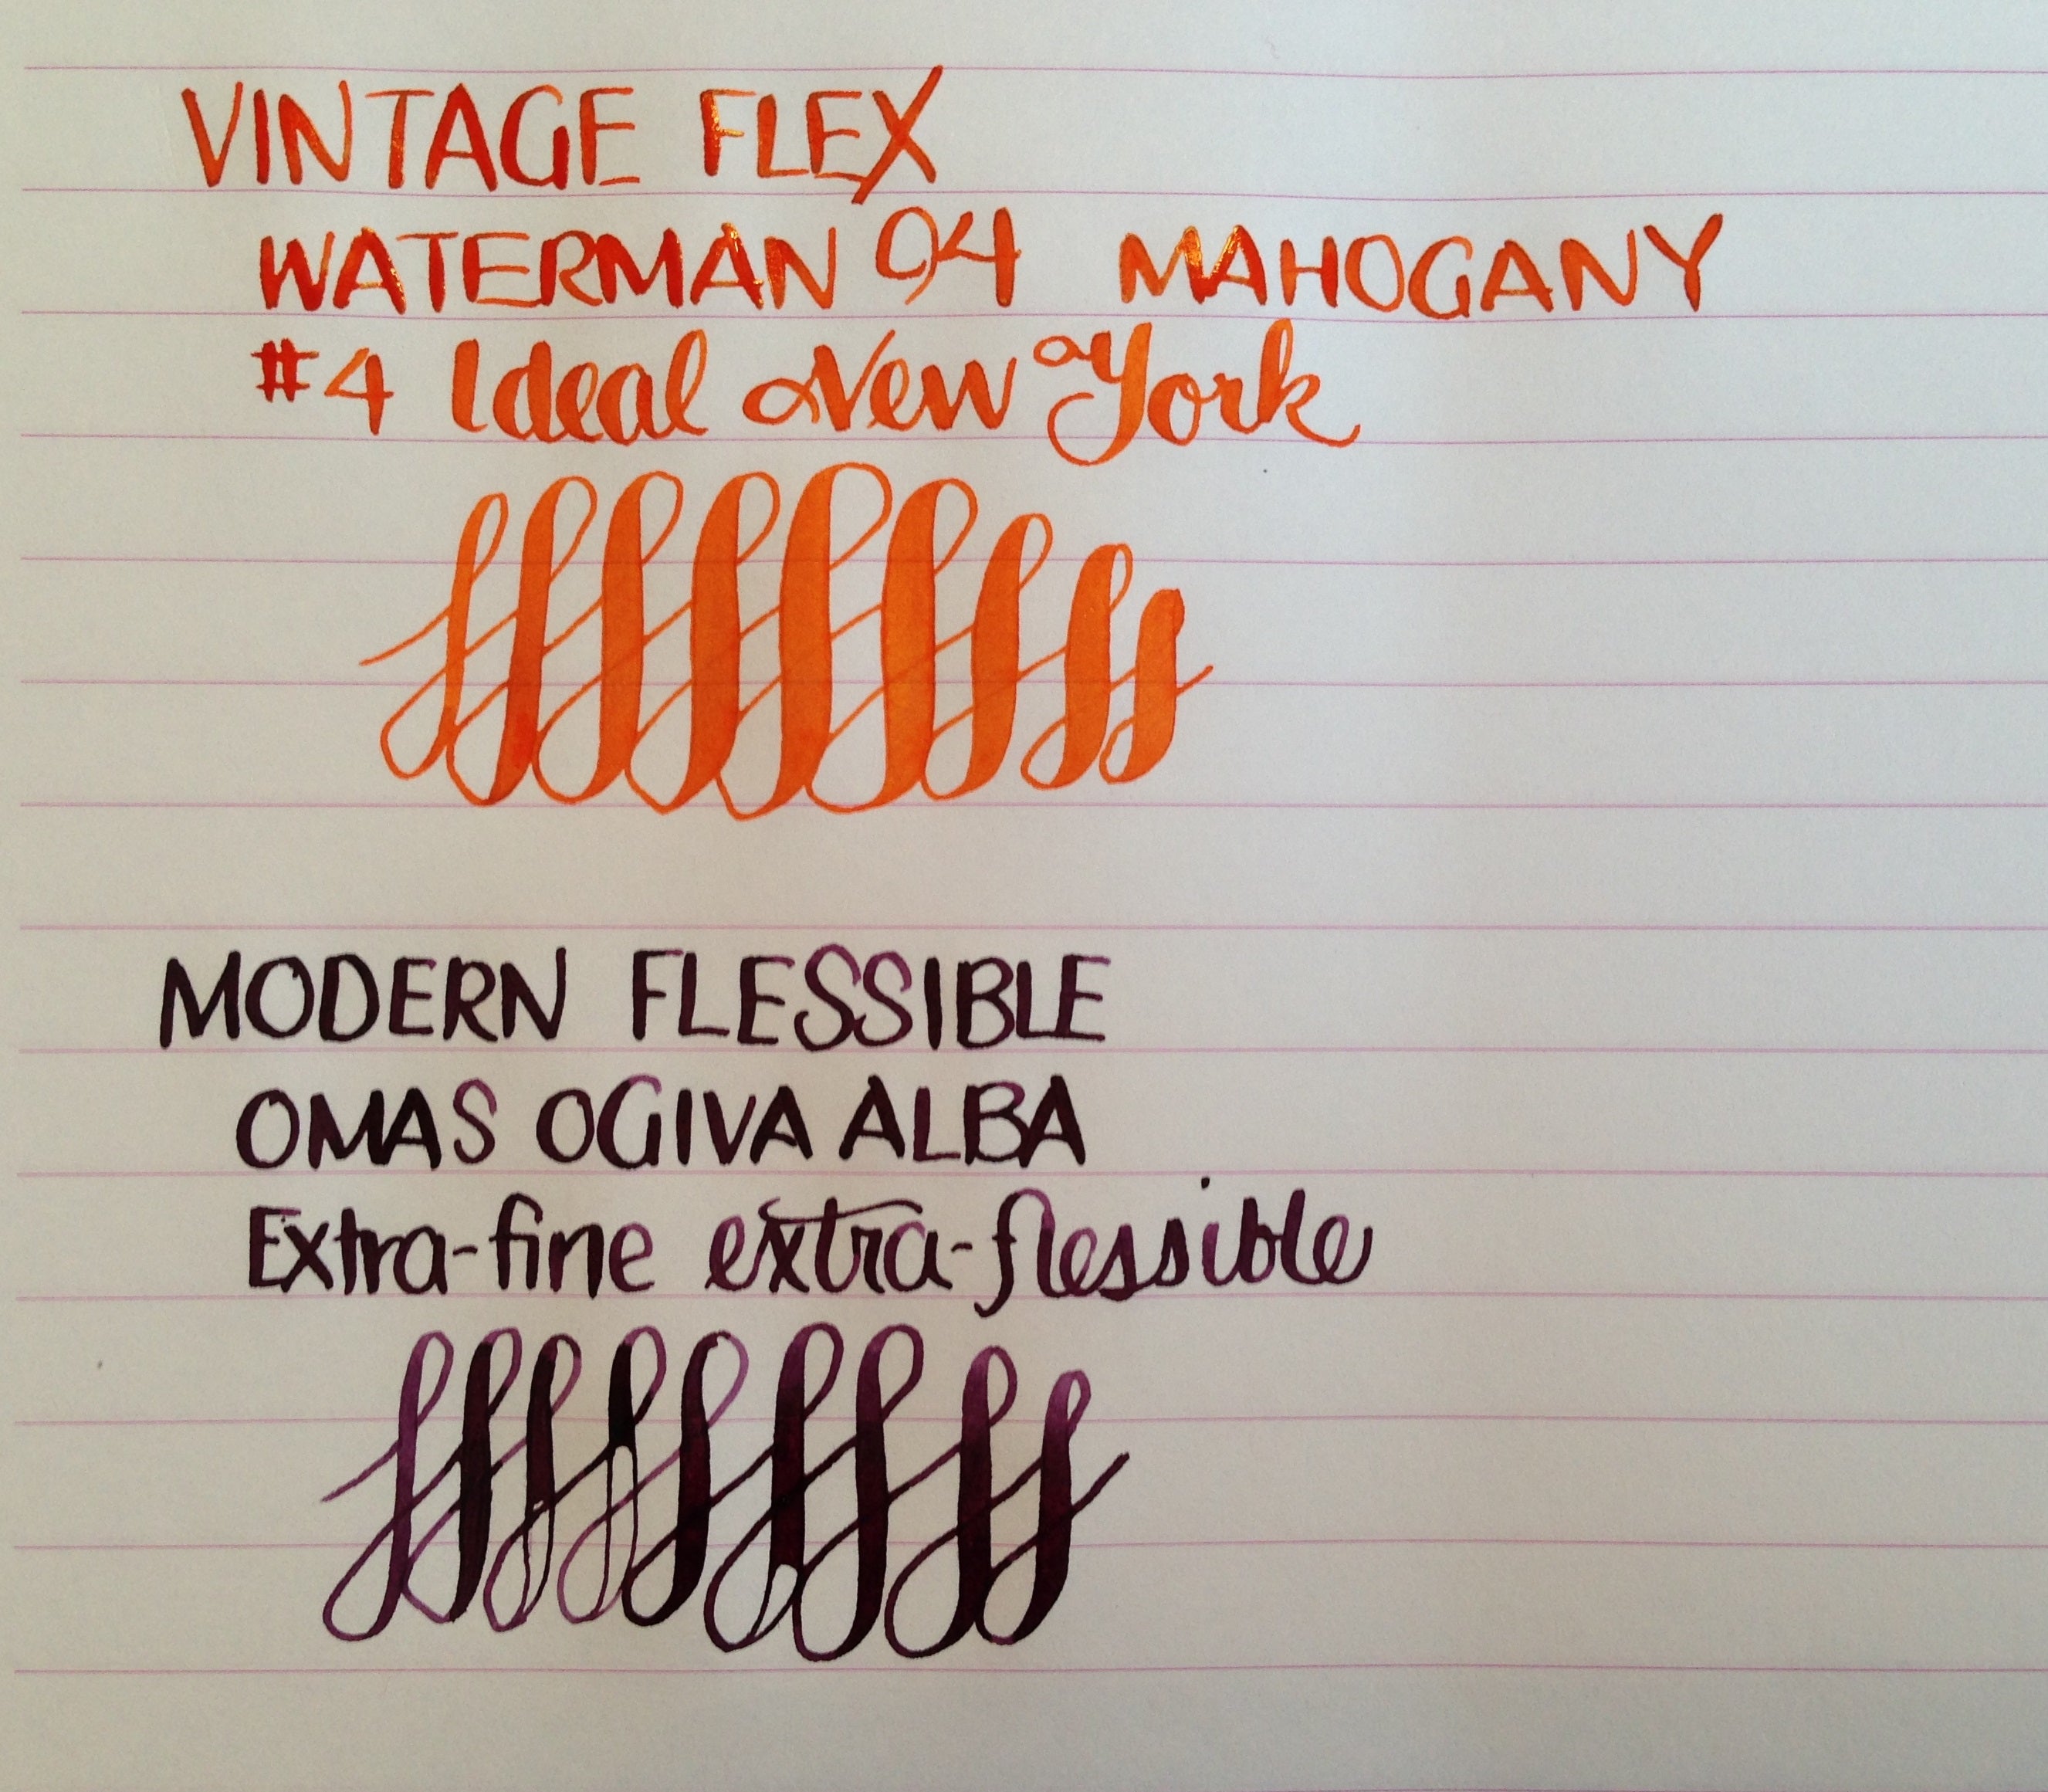 VINTAGE FLEX
WATERMAN 94 MAHOGANY
#4 Ideal New York
MODERN FLESSIBLE
OMAS OGIVA ALBA
Extra-fine extra-flessible